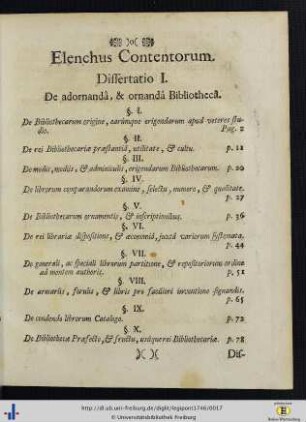 Elenchus Contentorum.
Dissertatio I.
De adornandâ, & ornandâ Bibliothecâ.
§. I.
De Bibliothecarum origine, earúmque erigendarum apud veteres stu-
dio. Pag. 2
§. II.
De rei Bibliothecariæ præstantiâ, utilitate, & cultu. p. 12
§. III.
De modis, mediis, & adminiculis, erigendarum Bibliothecarum. p. 20
§. IV.
De librorum comparandorum examine, selectu, numero, & qualitate.
p. 27
§. V.
De Bibliothecarum ornamentis, & inscriptionibus. p. 36
§. VI.
De rei librariæ dispositione, & œconomiâ, juxtà variorum systemata.
p. 44
§. VII.
De generali, ac speciali librorum partitione, & repositoriorum ordine
ad mentem authoris. p. 51
§. VIII.
De armariis, forulis, & libris pro faciliori inventione signandis.
p. 65
§. IX.
De condendo librorum Catalogo. p. 72
§. X.
De Bibliothecæ Præfecto, & fructu, usúque rei Bibliothecariæ. p. 78
Dis-
http://dl.ub.uni-freiburg.de/diglit/legipont1746/0017
© Universitätsbibliothek Freiburg